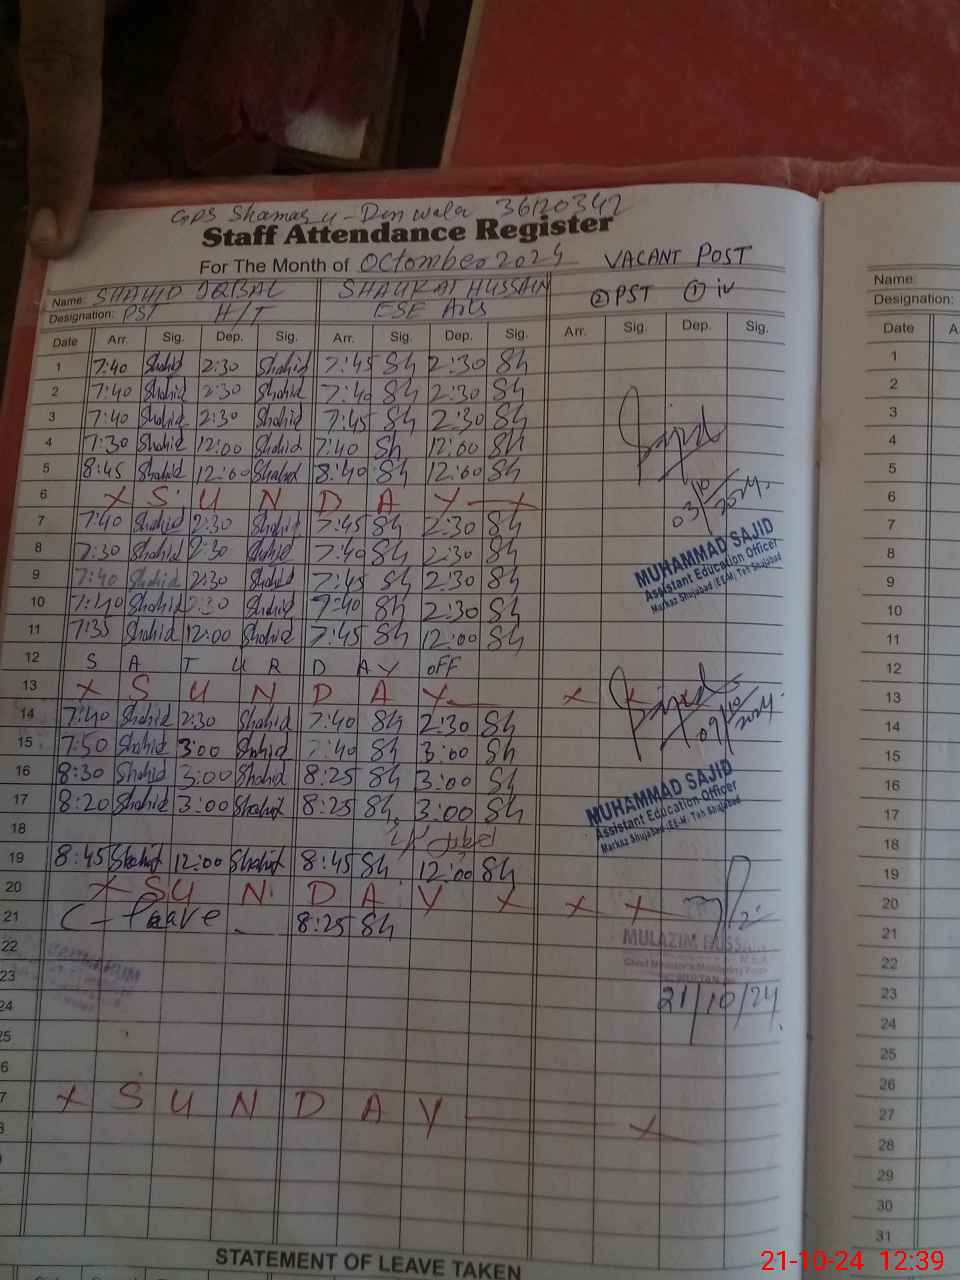 GPS Shamas u-Din wala 36120342
Staff Attendance Register
For The Month of Octomber 2024 VACANT POST
Name: SHAHID IQBAL SHAUKAT HUSSAIN
② PST ① iv
Designation: PST H/T ESE Arts
Date Arr. Sig. Dep. Sig. Arr. Sig. Dep. Sig. Arr. Sig. Dep. Sig.
1 7:40 Shahid 2:30 Shahid 7:45 Sh 2:30 Sh
2 7:40 Shahid 2:30 Shahid 7:40 Sh 2:30 Sh
3 7:40 Shahid 2:30 Shahid 7:45 Sh 2:30 Sh
4 7:30 Shahid 12:00 Shahid 7:40 Sh 12:00 Sh
5 8:45 Shahid 12:00 Shahid 8:40 Sh 12:00 Sh
6 x S U N D A Y x
7 7:40 Shahid 2:30 Shahid 7:45 Sh 2:30 Sh
8 7:30 Shahid 2:30 Shahid 7:40 Sh 2:30 Sh
9 7:40 Shahid 2:30 Shahid 7:45 Sh 2:30 Sh
10 7:40 Shahid 2:30 Shahid 7:40 Sh 2:30 Sh
11 7:35 Shahid 12:00 Shahid 7:45 Sh 12:00 Sh
12 S A T U R D A Y OFF
13 x S U N D A Y x x
14 7:40 Shahid 2:30 Shahid 7:40 Sh 2:30 Sh
15 7:50 Shahid 3:00 Shahid 7:40 Sh 3:00 Sh
16 8:30 Shahid 3:00 Shahid 8:25 Sh 3:00 Sh
17 8:20 Shahid 3:00 Shahid 8:25 Sh 3:00 Sh
18
19 8:45 Shahid 12:00 Shahid 8:45 Sh 12:00 Sh
20 x S U N D A Y x x x
21 C-leave 8:25 Sh
22
23
24
25
6
7 x S U N D A Y x
8
Sajid
03/10/2024.
MUHAMMAD SAJID
Assistant Education Officer
Markaz Shujabad (EE-M) Teh Shujabad
Sajid
09/10/2024
MUHAMMAD SAJID
Assistant Education Officer
Markaz Shujabad (EE-M) Teh Shujabad
MULAZIM HUSSAIN
21/10/24
STATEMENT OF LEAVE TAKEN
Name:
Designation:
Date A
1
2
3
4
5
6
7
8
9
10
11
12
13
14
15
16
17
18
19
20
21
22
23
24
25
26
27
28
29
30
31
21-10-24 12:39